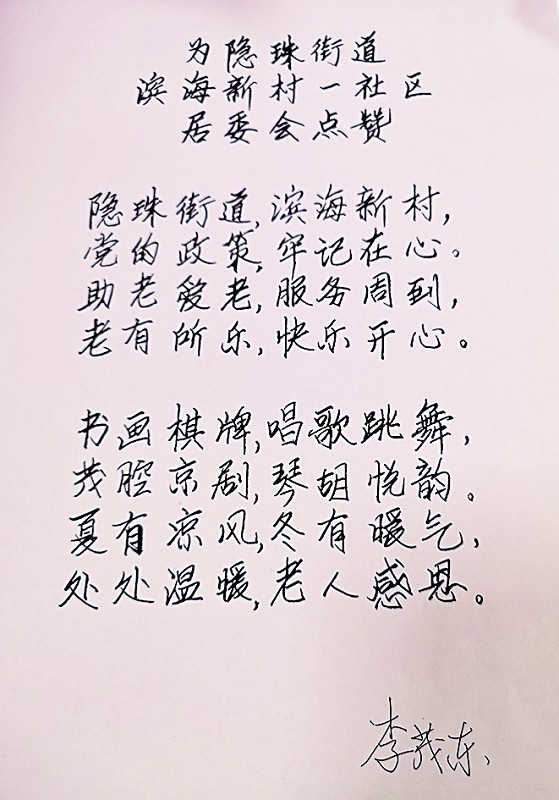 为隐珠街道
滨海新村一社区
居委会点赞
隐珠街道,滨海新村,
党的政策,牢记在心。
助老爱老,服务周到,
老有所乐,快乐开心。
书画棋牌,唱歌跳舞,
茂腔京剧,琴胡悦韵。
夏有凉风,冬有暖气,
处处温暖,老人感恩。
李茂东